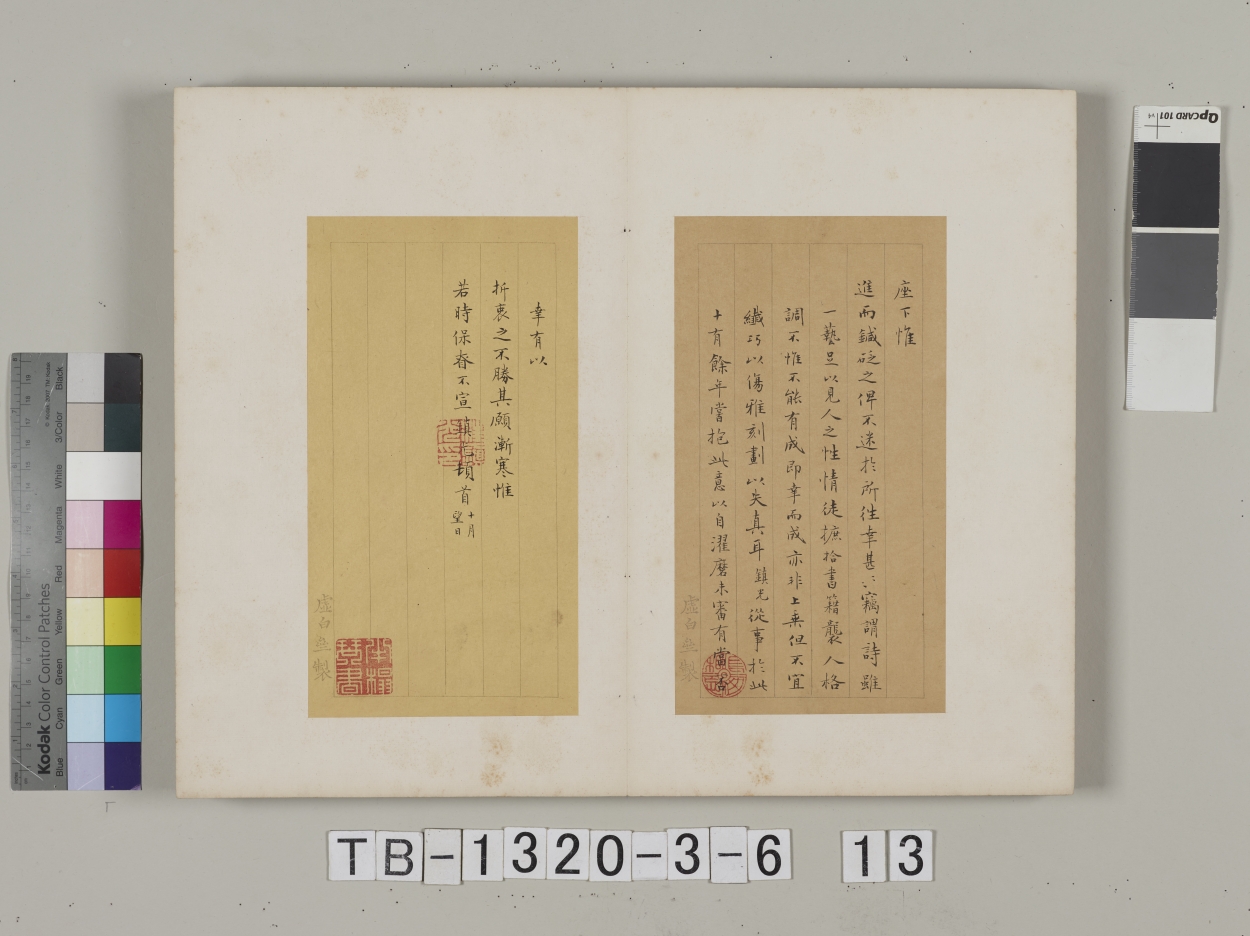 座下惟
進而鍼砭之俾不迷於所往幸甚〻竊謂詩雖
一藝足以見人之性情徒摭拾書籍襲人格
調不惟不能有成即幸而成亦非上乘但不宜
纖巧以傷雅刻劃以失真耳鎮兄從事於此
十有餘年嘗抱此意以自濯磨未審有當否
虛白齋製
幸有以
折衷之不勝其願漸寒惟
若時保眷不宣鎮頓首十月
望日
虛白齋製
坐擁
琴書
Kodak Color Control Patches
© Kodak, 2007 TM: Kodak
Blue
Cyan
Green
Yellow
Red
Magenta
White
3/Color
Black
QPCARD 101 v4
TB-1320-3-6 13